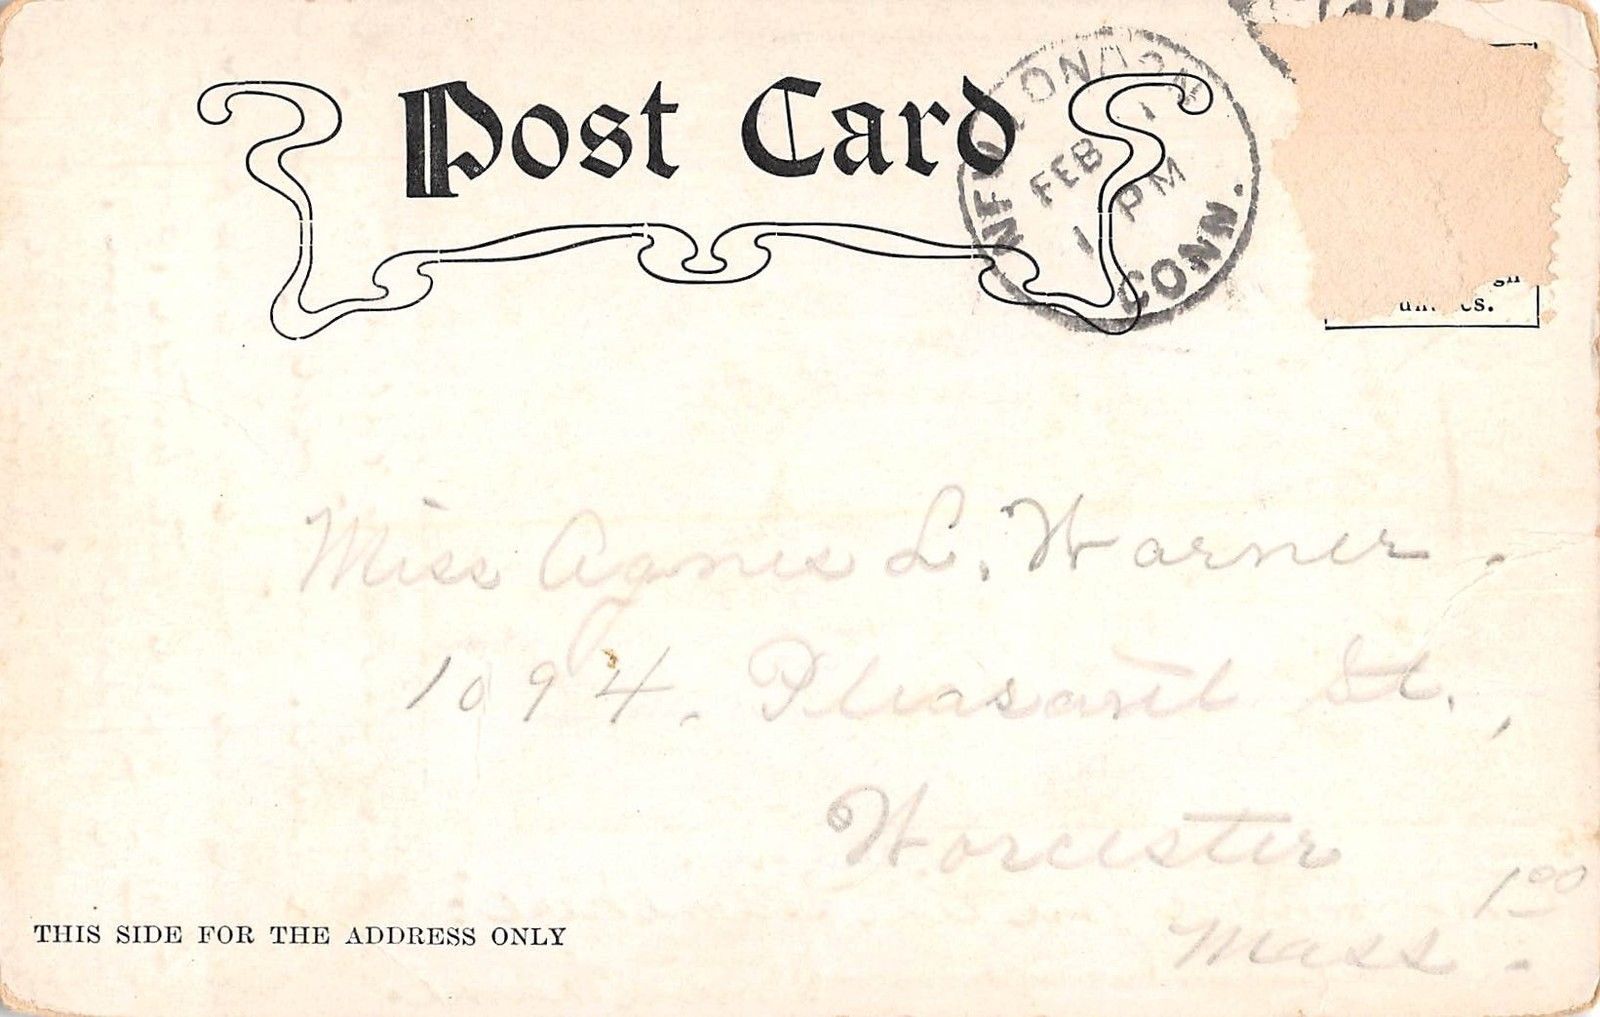 Post Card
FEB 1
1 PM
CONN.
Miss Agnes L. Warner.
1094. Pleasant St.,
Worcester
1.00
Mass.
THIS SIDE FOR THE ADDRESS ONLY